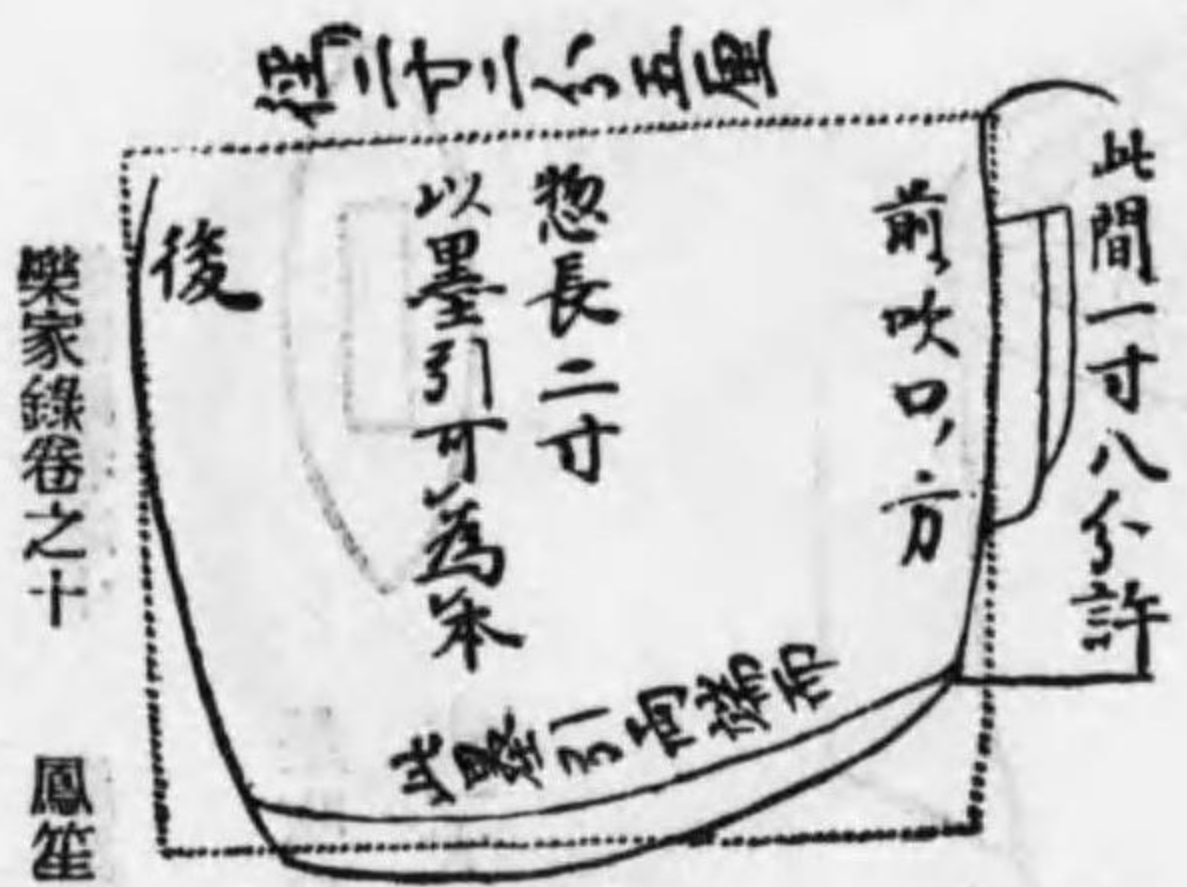 徑二寸二分五厘
此間一寸八分許
前吹口ノ方
惣長二寸
以墨引可為本
後
此墨引間
樂家錄卷之十　鳳笙